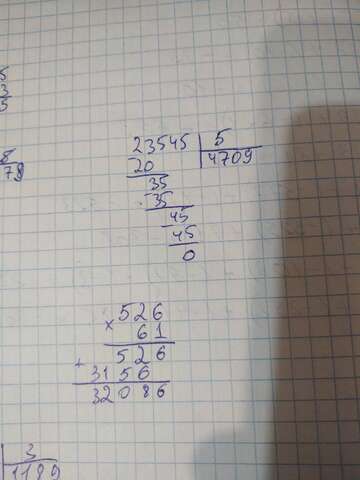 5
3
5
8
78
23545 5
20 4709
35
35
45
45
0
× 526
61
+ 526
3156
32086
3
1189